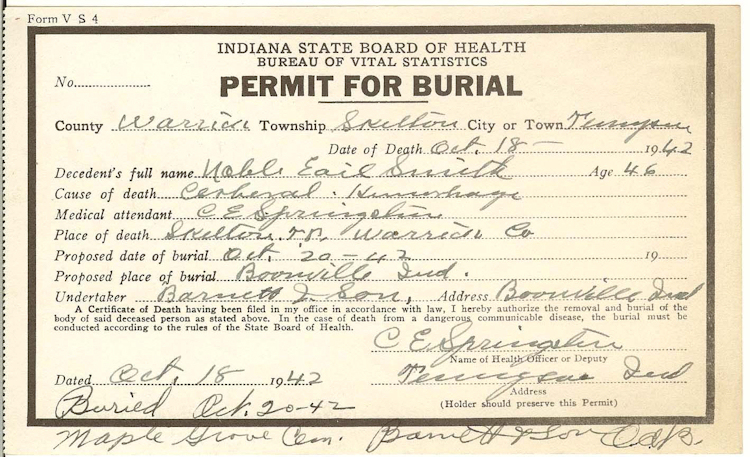 Form V S 4
INDIANA STATE BOARD OF HEALTH
BUREAU OF VITAL STATISTICS
No.
PERMIT FOR BURIAL
County Warrick Township Skelton City or Town Tennyson
Date of Death Oct. 18 - 1942
Decedent's full name Noble Earl Smith Age 46
Cause of death Cerberal Hemorhage
Medical attendant C E Springstin
Place of death Skelton, Tp, Warrick Co
Proposed date of burial Oct. 20-42 19
Proposed place of burial Boonville Ind.
Undertaker Barnett & Son, Address Boonville Ind
A Certificate of Death having been filed in my office in accordance with law, I hereby authorize the removal and burial of the
body of said deceased person as stated above. In the case of death from a dangerous communicable disease, the burial must be
conducted according to the rules of the State Board of Health.
C E Springstin
Name of Health Officer or Deputy
Dated Oct, 18 1942 Tennyson Ind
Address
(Holder should preserve this Permit)
Buried Oct. 20-42
Maple Grove Cem. Barnett & Son